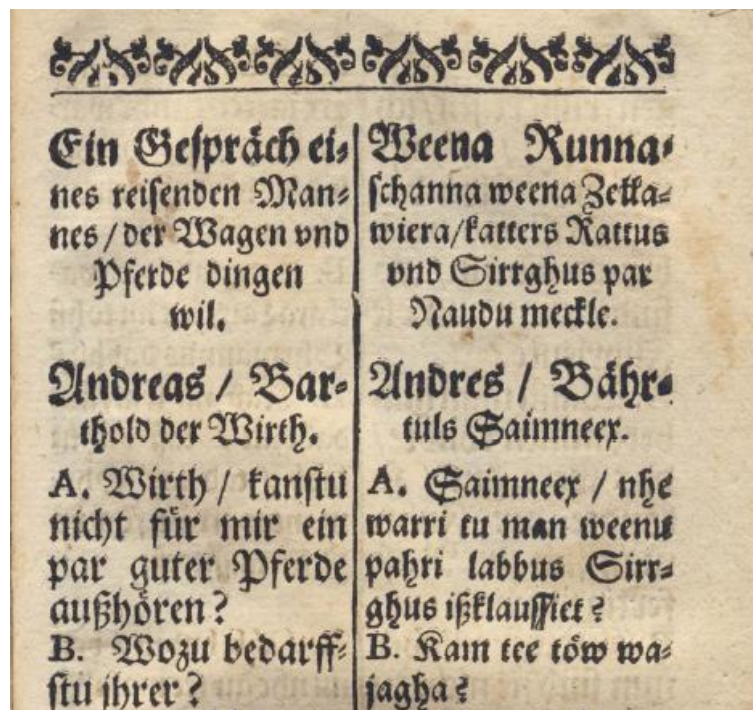 Ein Gespräch ei⸗
nes reisenden Man⸗
nes / der Wagen vnd
Pferde dingen
wil.
Andreas / Bar⸗
thold der Wirth.
A. Wirth / kanstu
nicht für mir ein
par guter Pferde
außhören?
B. Wozu bedarff⸗
stu jhrer?
Weena Runna⸗
schanna weena Zella⸗
wiera / katters Rattus
vnd Sirrghus par
Naudu meckle.
Andres / Bähr⸗
tuls Saimneex.
A. Saimneex / nhe
warri tu man weenu
pahri labbus Sirr⸗
ghus ißklaussiet?
B. Kam tee töw wa⸗
jagha?